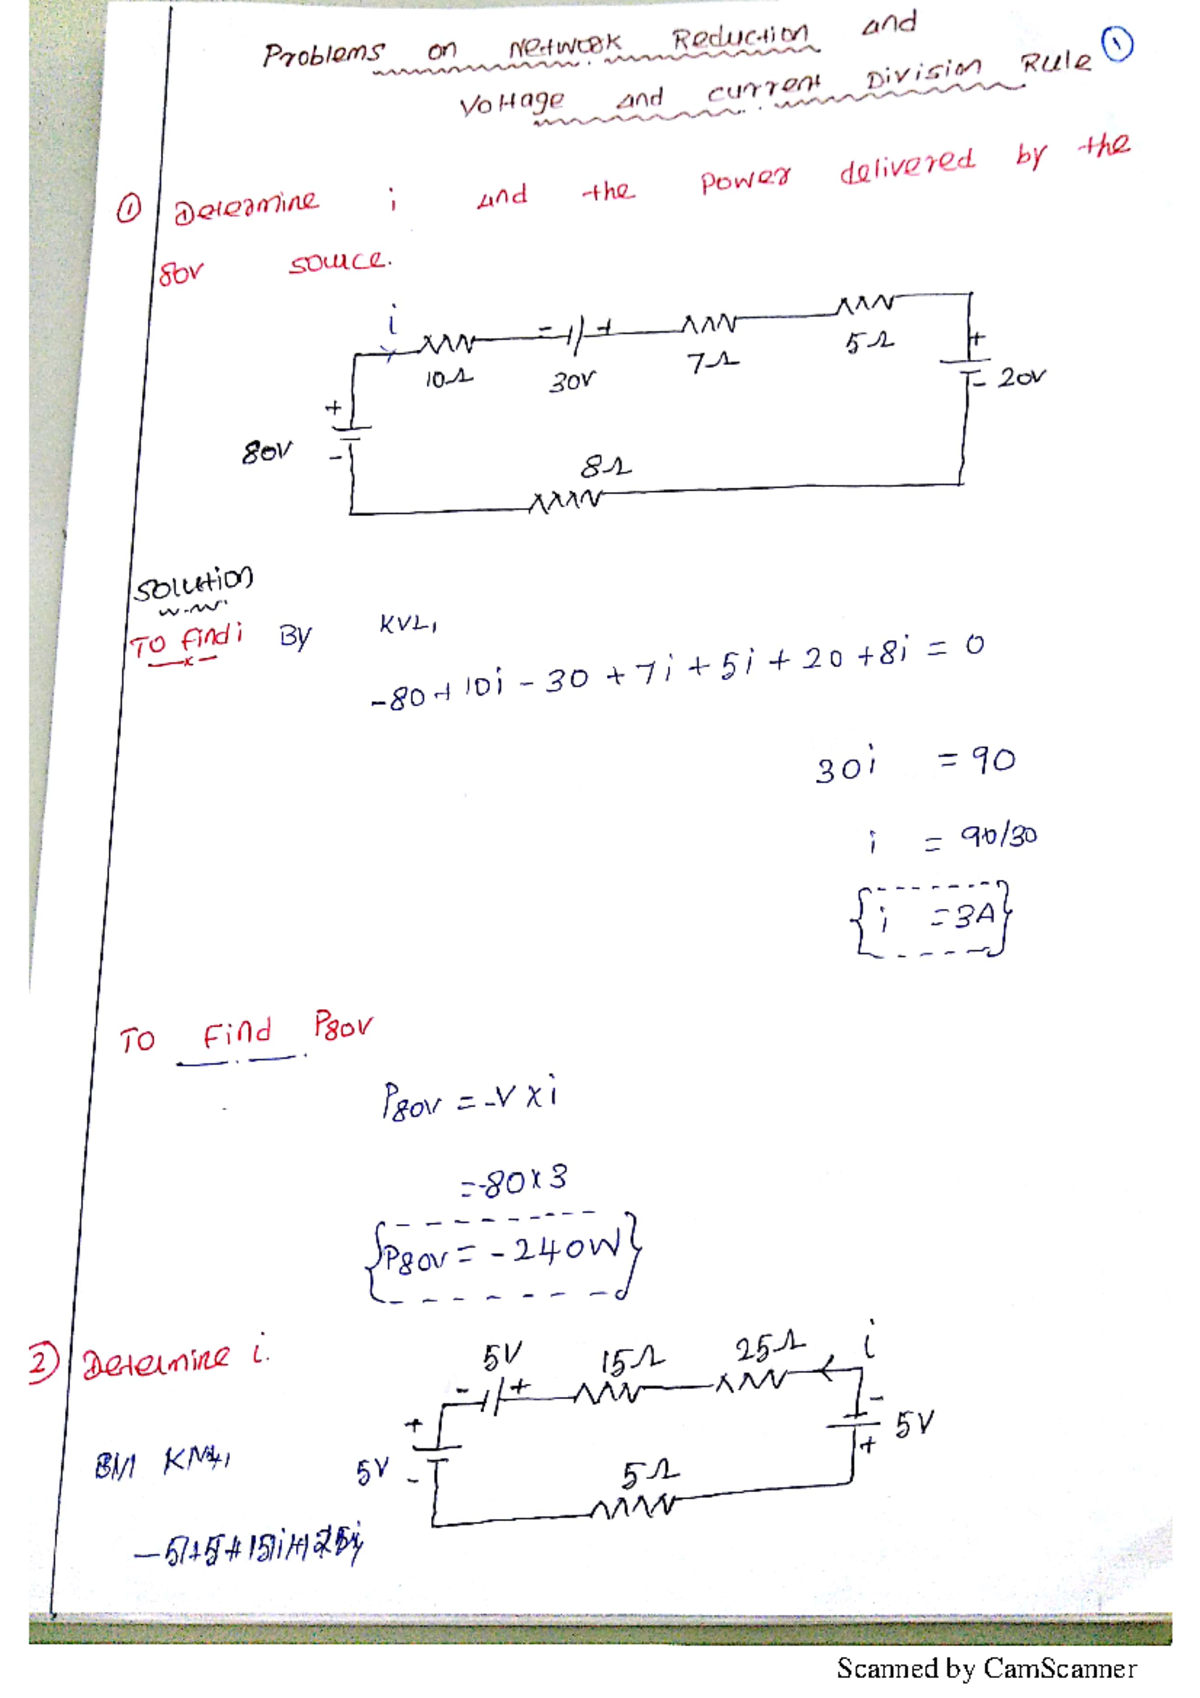 Problems on Network Reduction and
Voltage and current Division Rule ①
① Determine i and the power delivered by the
80V source.
i
10Ω
- +
30V
7Ω
5Ω
+
- 20V
+
80V
-
8Ω
Solution
To find i By KVL,
-80+10i-30+7i+5i+20+8i=0
30i = 90
i = 90/30
i = 3A
To Find P80V
P80V = -V x i
= -80x3
P80V = -240W
② Determine i.
5V
- +
15Ω
25Ω
i
-
5V
+
+
5V
-
5Ω
Scanned by CamScanner